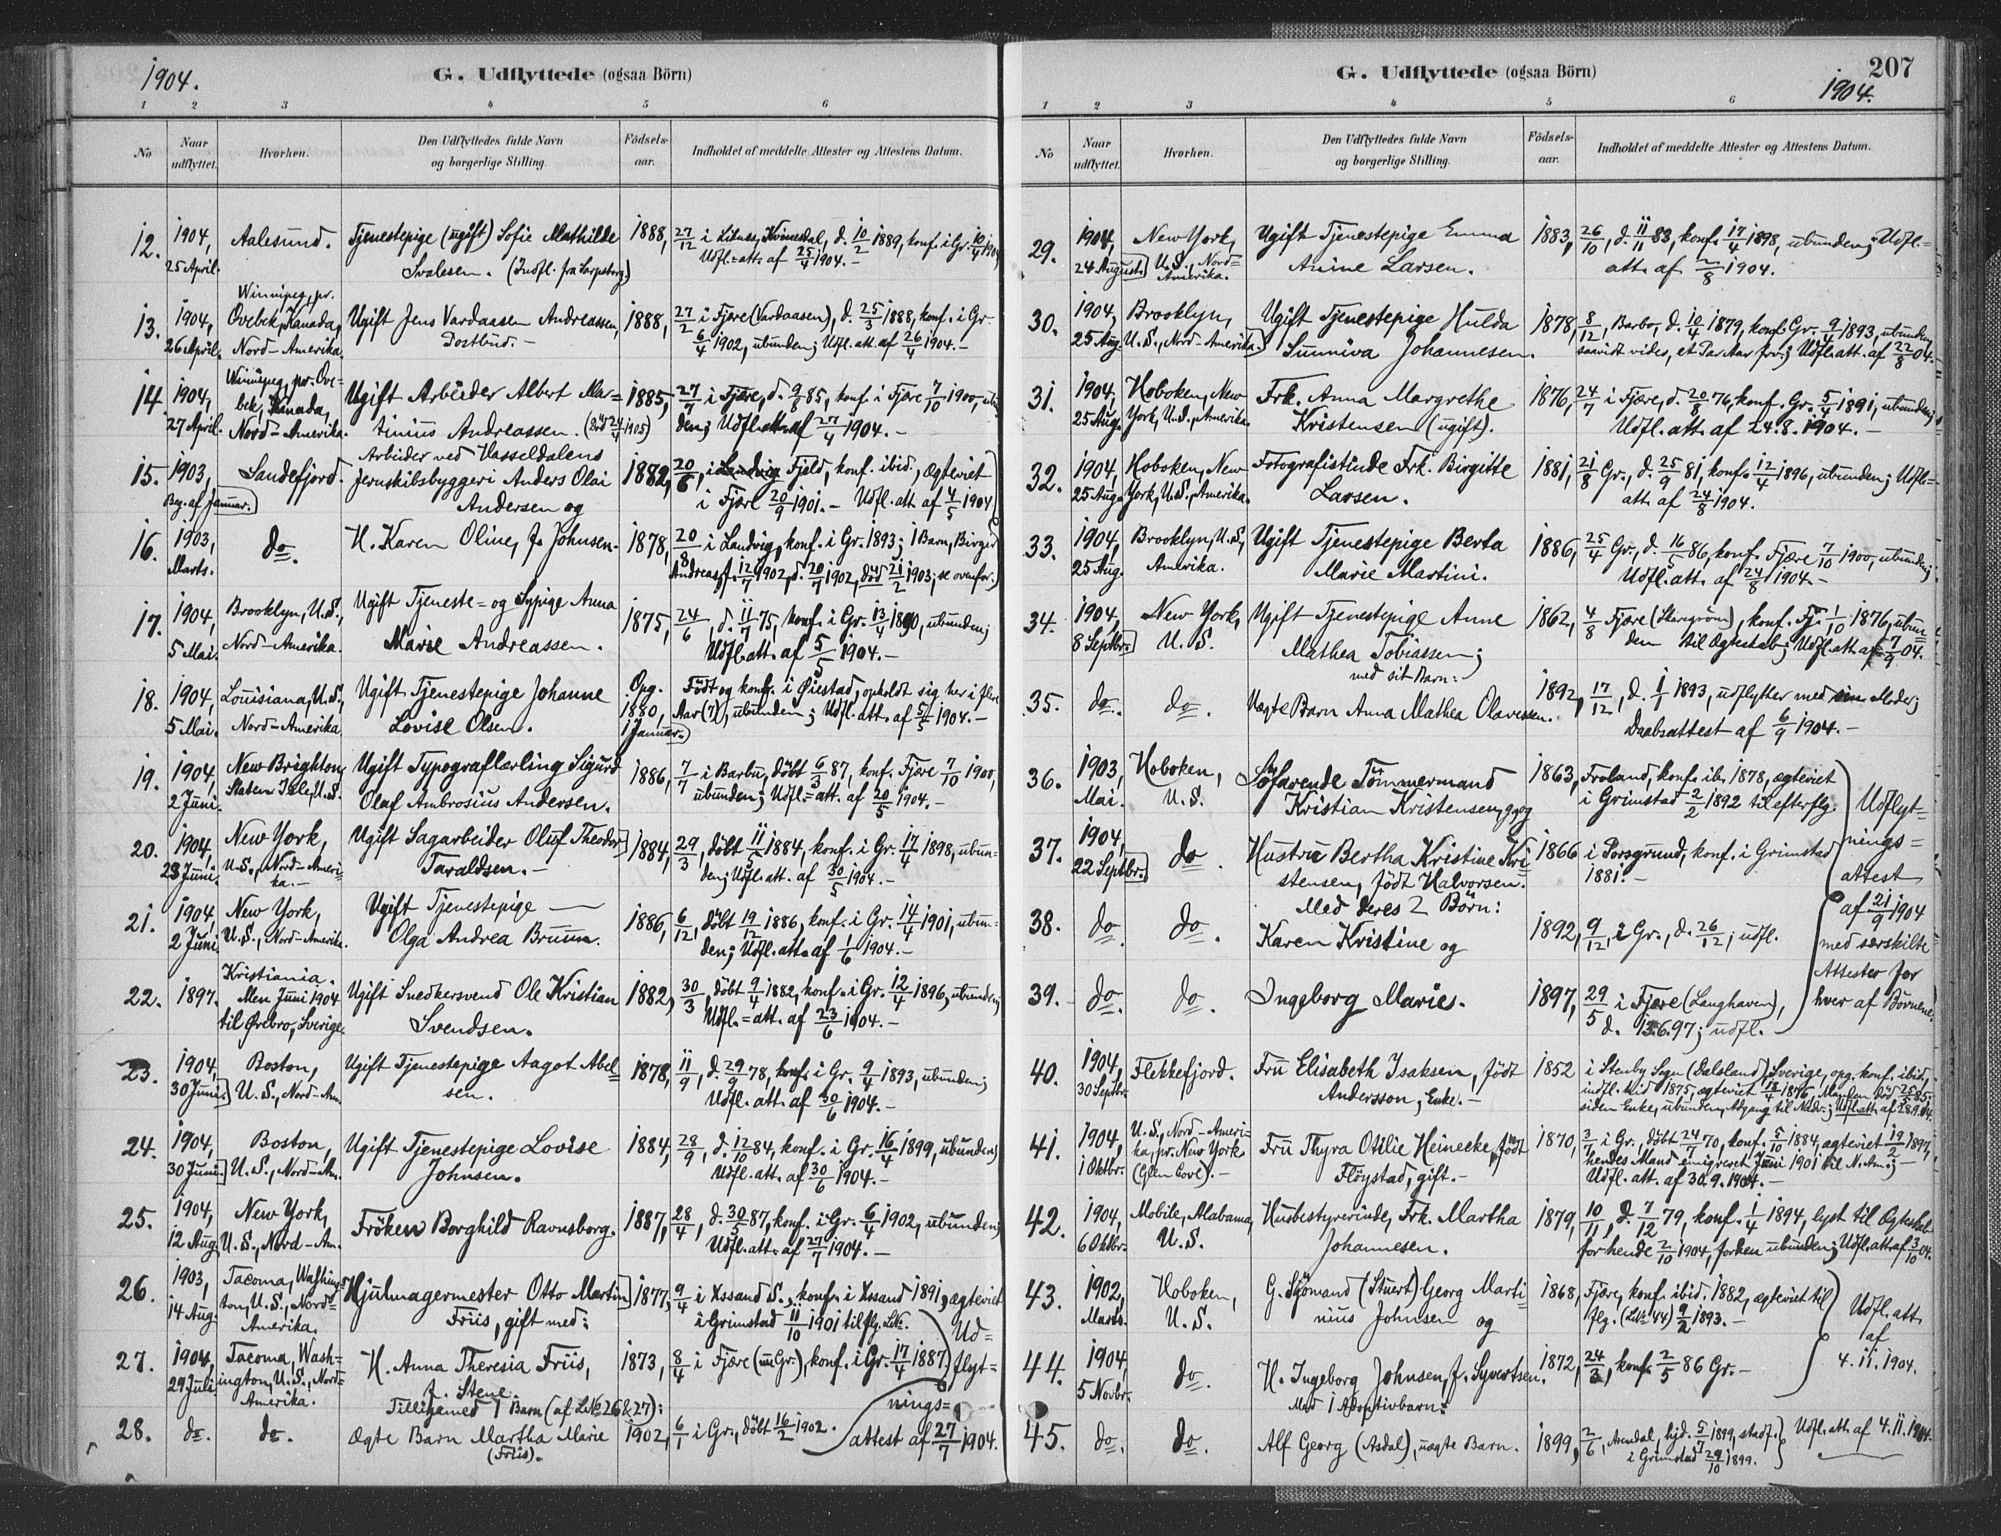 1904.
G. Udflyttede (ogsaa Börn)
1 2 3 4 5 6
No
Naar udflyttet.
Hvorhen.
Den Udflyttedes fulde Navn og borgerlige Stilling.
Födsels-aar.
Indholdet af meddelte Attester og Attestens Datum.
12. 1904, Aalesund. Tjenestepige (ugift) Sofie Mathilde 1888, 27/12 i Liknes, Kvinesdal, d. 10/2 1889, konf. i Gr.
25 April. Svalesen. (Indfl. fra Sarpsborg) Udfl.=att. af 25/4 1904.-
Winnipeg, pr.
13. 1904, Qvebek, Kanada, Ugift Jens Vardaasen Andreassen, 1888, 27/2 i Fjære (Vardaasen), d. 25/3 1888, konf. i Gr.
26 April. Nord-Amerika. 6/4 1902, ubunden; Udfl. att. af 26/4 1904.-
Winnipeg, pr. Qve=
14. 1904, bek, Kanada, Ugift Arbeider Albert Mar= 1885, 27/7 i Fjære, d. 9/8 85, konf. i Fjære 7/10 1900, ubun
27 April. Nord-Amerika. tinius Andreassen. den; Udfl.att. af 27/4 1904.-
Arbeider ved Hasseldalens
15. 1903, Sandefjord. Jernskibsbyggeri Anders Olai 1882, 20/6, i Fjeld, konf. ibid., ægteviet
Beg. af Januar. Andersen og i Fjære 20/9 1901.- Udfl. att. af 4/5 1904
16. 1903, do. H. Karen Oline, f. Johnsen. 1878, 20/8 i Landvig, konf. i Gr. 1893; 1 Barn, Birger
Marts. Andreas, f. 12/7 1902, d. 20/7 1902, död 21/2 1903; se ovenfor.
17. 1904, Brooklyn, U.S., Ugift Tjeneste= og Sypige Anna 1875, 24/6, d. 11/7 75, konf. i Gr. 13/4 1890, ubunden;
5 Mai. Nord-Amerika. Marie Andreassen. Udfl. att. af 5/5 1904.-
18. 1904, Louisiana, U.S., Ugift Tjenestepige Johanne Opg. 1880, 1 Januar. Födt og konf. i Öiestad, opholdt sig her i flere
5 Mai. Nord-Amerika Lovise Olsen. Aar (7), ubunden; Udfl. att. af 5/5 1904.-
19. 1904, New Brighton, Ugift Typograflærling Sigurd 1886, 7/7 i Barbu, döbt 6/3 87, konf. Fjære 7/10 1900,
2 Juni. Staten Isle, U.S. Olaf Ambrosius Andersen. ubunden; Udfl.=att. af 20/5 1904.-
20. 1904, New York, Ugift Sagarbeider Oluf Theodor 1884, 29/3, döbt 11/5 1884, konf. i Gr. 17/4 1898, ubun-
23 Juni. U.S., Nord-Ameri-ka.- Taraldsen.- den; Udfl. att. af 30/5 1904.-
21. 1904, New York, Ugift Tjenestepige 1886, 6/12, döbt 19/12 1886, konf. i Gr. 14/4 1901, ubun-
2 Juni. U.S., Nord-Amerika. Olga Andrea Bruun. den; Udfl. att. af 1/6 1904.-
Kristiania.
22. 1897. Men Juni 1904 Ugift Snedkersvend Ole Kristian 1882, 30/3, döbt 9/4 1882, konf. i Gr. 12/4 1896, ubunden;
til Örebro, Sverige. Svendsen. Udfl.=att. af 23/6 1904.-
23. 1904, Boston, Ugift Tjenestepige Aagot Abel= 1878, 11/9, d. 29/9 78, konf. i Gr. 9/4 1893, ubunden;
30 Juni. U.S., Nord-Am. sen. Udfl. att. af 30/6 1904.-
24. 1904, Boston, Ugift Tjenestepige Lovise 1884, 28/9, d. 12/10 84, konf. i Gr. 16/4 1899, ubunden;
30 Juni. U.S., Nord-Am. Johnsen. Udfl. att. af 30/6 1904.-
25. 1904, New York, Fröken Borghild Ravnsborg. 1887, 28/4, d. 30/5 87, konf. i Gr. 6/4 1902, ubunden;
12 Aug. U.S., Nord-Am. Udfl. att. af 27/7 1904.-
26. 1903, Tacoma, Washing= Hjulmagermester Otto Martin 1877, 9/4 i Xssand S., konf. i Xssand 1891, ægteviet
14 Aug. ton, U.S., Nord=Amerika. Friis, gift med: i Grimstad 11/10 1901 til flg. L.№.
27. 1904, Tacoma, Wash= H. Anna Theresia Friis, 1873, 8/4 i Fjære (Gr.), konf. i Gr. 17/4 1887.
29 Juli. ington, U.S., Nord=Amerika. f. Stene.
Udflyt=nings=attest af 27/7 1904.
Tilligemed 1 Barn (af L.№ 26 & 27):
28. do. do. Ægte Barn Martha Marie (Friis). 1902, 6/1 i Gr., döbt 16/2 1902.
G. Udflyttede (ogsaa Börn)
207
1904.
1 2 3 4 5 6
No
Naar udflyttet.
Hvorhen.
Den Udflyttedes fulde Navn og borgerlige Stilling.
Födsels-aar.
Indholdet af meddelte Attester og Attestens Datum.
29. 1904, New York, Ugift Tjenestepige Emma 1883, 26/10, d. 11/11 83, konf. 17/4 1898, ubunden; Udfl.=
24 August. U.S., Nord=Amerika. Anine Larsen. att. af 2/8 1904.
30. 1904, Brooklyn, Ugift Tjenestepige Hulda 1878, 8/12, Barbo, d. 10/4 1879, konf. Gr. 9/4 1893, ubunden,
25 Aug. U.S., Nord-Amerika. Sunniva Johannesen. saavidt vides, et Par Aar frv.; Udfl. att. af 22/8 04.-
31. 1904, Hoboken, New Frk. Anna Margrethe 1876, 24/7 i Fjære, d. 20/8 76, konf. Gr. 5/4 1891, ubunden;
25 Aug. York, U.S., Amerika. Kristensen (ugift). Udfl. att. af 24.8.1904.-
32. 1904, Hoboken, New Fotografistinde Frk. Birgitte 1881, 21/8 Gr., d. 25/9 81, konf. 12/4 1896, ubunden; Udfl.=
25 Aug. York, U.S., Amerika. Larsen. att. af 24/8 1904.
33. 1904, Brooklyn, U.S., Ugift Tjenestepige Berta 1886, 25/4 Gr., d. 16/5 86, konf. Fjære 7/10 1900, ubunden;
25 Aug. Amerika. Marie Martini. Udfl. att. af 24/8 1904.-
34. 1904, New York, Ugift Tjenestepige Anne 1862, 4/8 Fjære (Skaregröm), konf. Fj. 1/10 1876, ubun=
8 Septbr. U.S. Mathea Tobiassen; den til Ægteskab; Udfl. att. af 7/9 04.
med sit Barn:
35. do. do. Uægte Barn Anna Mathea Olavessen. 1892, 17/12, d. 1/1 1893, udflytter med Moder;
Daabsattest af 6/9 1904.-
36. 1903, Hoboken, Söfarende Tömmermand 1863, Froland, konf. ib. 1878, ægteviet
Mai. U.S. Kristian Kristensen, og i Grimstad 2/2 1892 til efterflg.
37. 1904, do. Hustru Bertha Kristine Kri= 1866 i Porsgrund, konf. i Grimstad
22 Septbr. stensen, födt Halvorsen. 1881.-
Med deres 2 Börn:
38. do do. Karen Kristine og 1892, 9/12, i Gr., d. 26/12; udfl.
39. do do. Ingeborg Marie. 1897, 29/5 i Fjære (Langhaven), d. 13.6.97; udfl.
Udflyt=nings=attest af 21/9 1904 med særskilte Attester for hver af Börnene.
40. 1904, Flekkefjord. Fru Elisabeth Isaksen, födt 1852 i Stenby Sogn (Dalsland) Sverige, opg. konf. ibid.,
30 Septbr. Andersson, Enke.- indfl. hid 1875, ægteviet 1876, Manden död 85;
siden Enke, ubunden, Adgang til Nadv.; Udfl. att. af 28.9.04.
41. 1904, U.S., Nord-Ameri-ka, pr. New York Fru Thyra Otilie Heinecke, födt 1870, 3/7 i Gr., döbt 24/7 70, konf. 5/10 1884, ægteviet 19/2 1897,
1 Oktbr. (Glen Cove).- Flöystad, gift.- hendes Mand emigreret Juni 1901 til N. Am.;
Udfl. att. af 30.9.1904.-
42. 1904, Mobile, Alabama, Husbestyrerinde, Frk. Martha 1879, 10/1, d. 7/12 79, konf. 1/4 1894, lyst til Ægteskab
6 Oktbr. U.S. Johannesen. for hende 2/10 1904, forden ubunden; Udfl. att. af 3/10 04.
43. 1902, Hoboken, G. Sjömand (Stuert) Georg Marti= 1868, Fjære, konf. ibid. 1882, ægteviet til
Marts. U.S. nius Johnsen og flg. (L.№ 44) 9/2 1893.-
44. 1904, do. H. Ingeborg Johnsen, f. Syvertsen. 1872, 24/3, konf. 2/5 86 Gr.-
5 Novbr. Med 1 Adoptivbarn:
Udfl. att. af 4.11.1904.
45. do. do. Alf Georg (Asdal), uægte Barn. 1899, 2/6, Arendal, hjd. 5/7 1899, stadf. i Grimstad 29/10 1899. Udfl. att. af 4.11.1904.